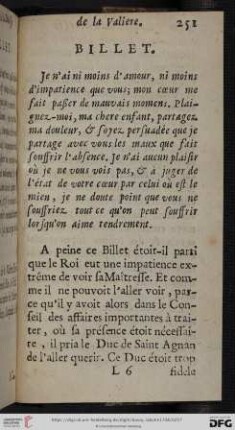 de la Valiere. 251
BILLET.
Je n'ai ni moins d'amour, ni moins
d'impatience que vous; mon cœur me
fait passer de mauvais momens. Plai-
guez-moi, ma chere enfant, partagez
ma douleur, & soyez persuadée que je
partage avec vous les maux que fait
souffrir l'absence. Je n'ai aucun plaisir
où je ne vous vois pas, & à juger de
l'état de votre cœur par celui où est le
mien, je ne doute point que vous ne
souffriez tout ce qu'on peut souffrir
lorsqu'on aime tendrement.
A peine ce Billet étoit-il parti
que le Roi eut une impatience ex-
trême de voir sa Maîtresse. Et com-
me il ne pouvoit l'aller voir, par-
ce qu'il y avoit alors dans le Con-
seil des affaires importantes à trai-
ter, où sa présence étoit nécessai-
re, il pria le Duc de Saint Agnan
de l'aller querir. Ce Duc étoit trop
L 6 fidele